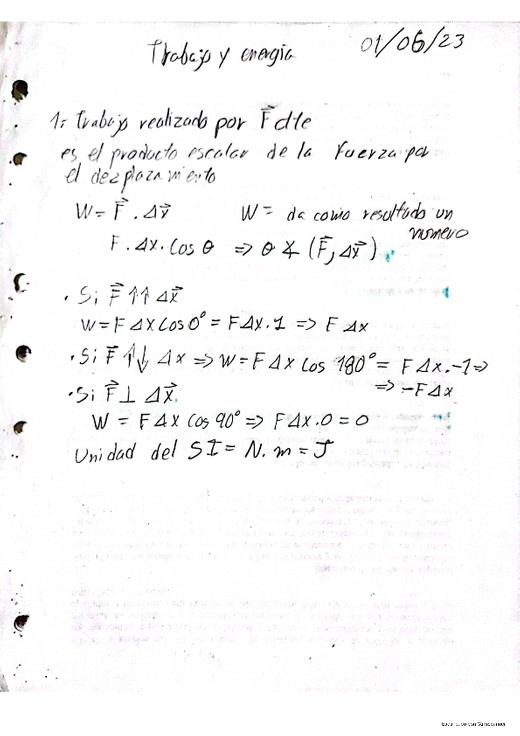 Trabajo y energia
01/06/23
1: Trabajo realizado por F⃗ cte
es el producto escalar de la Fuerza por
el dezplazamiento
W = F⃗ . Δx⃗
W = da como resultado un
numero
F . Δx . Cos θ => θ ∡ (F⃗, Δx⃗)
. Si F⃗ ↑↑ Δx⃗
W = F Δx Cos 0° = F Δx . 1 => F Δx
. Si F⃗ ↑↓ Δx => W = F Δx Cos 180° = F Δx . -1 =>
=> -F Δx
. Si F⃗ ⊥ Δx⃗.
W = F Δx Cos 90° => F Δx . 0 = 0
Unidad del SI = N. m = J